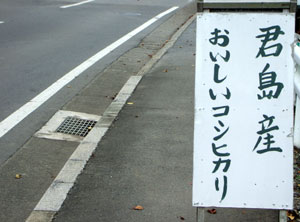 君島産
おいしいコシヒカリ